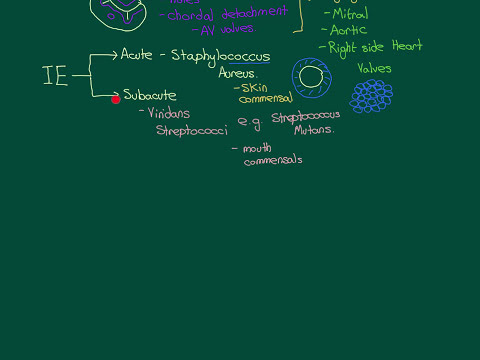 - chordal detachment
- AV valves
- Mitral
- Aortic
- Right side Heart
Valves
IE
Acute - Staphylococcus
Aureus.
- Skin
commensal
Subacute
- Viridans
Streptococci
e.g. Streptococcus
Mutans.
- mouth
commensals